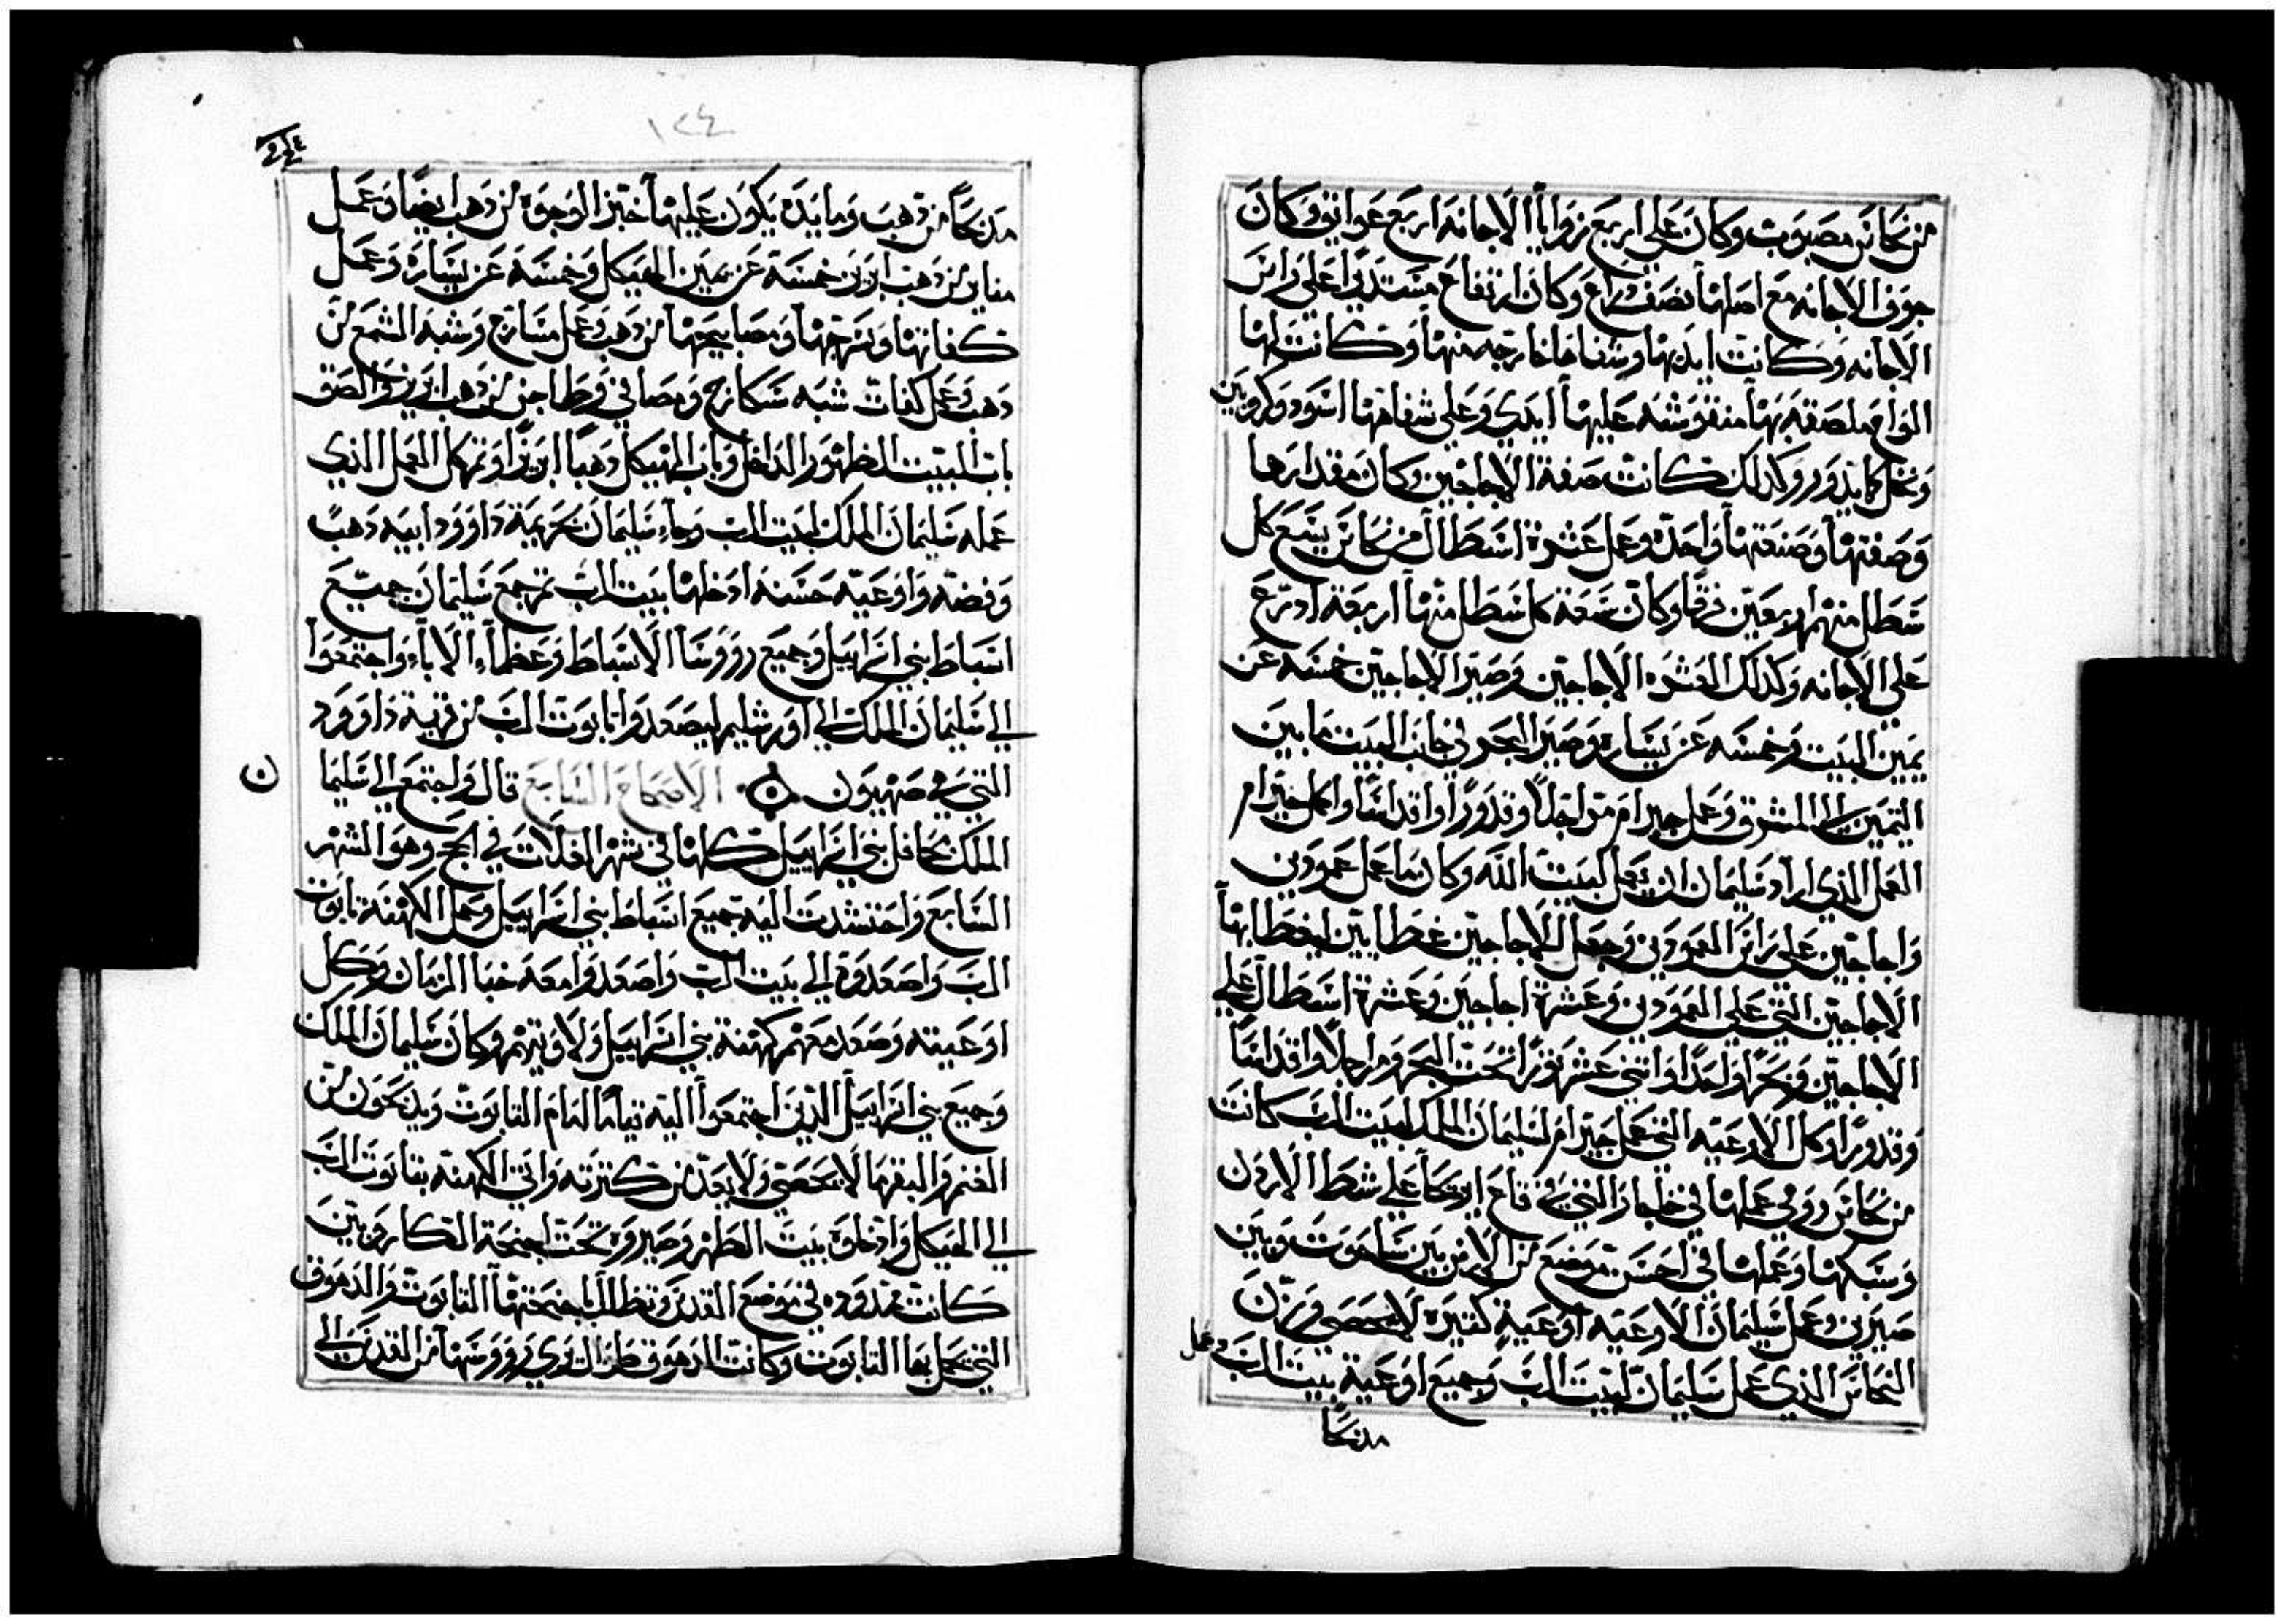 من نحاس مصبوب وكان على اربع زوايا الاجانه اربع عواتق وكان
جوف الاجانه مع اصلها نصف ذراع وكان ارتفاع مستديرا على راس
الاجانه وكانت ايديها وشفاهها خارجه منها وكانت لها
الواح ملصقه بها منقوشه عليها ايدي وعلى شفاهها اسود وكروبين
ونخل كما يدور وكذلك كانت صفة الاجاجين وكان مقدارها
وصفتها وصنعتها واحده وعمل عشرة اسطال من نحاس يسع كل
سطل منهم اربعين فرقا وكان سعة كل سطل منها اربعة ادرع
على الاجانه وكذلك العشره الاجاجين وصير الاجاجين خمسه عن
يمين البيت وخمسه عن يساره وصير البحر في جانب البيت مما بين
التيمن الى المشرق وعمل حيرام مراجلا وقدورا واقداسا واكمل حيرام
العمل الذي اراد سليمان ان يعمل لبيت الله وكان مما عمل عمودين
واجاجين على راس العمودين وجعل للاجاجين غطايين ليغطا بها
الاجاجين التي على العمودين وعشرة اجاجين وعشرة اسطال على
الاجاجين وبحرا واحدا واثني عشر ثورا تحت البحر ومراجلا واقداسا
وقدورا وكل الاوعيه التي عمل حيرام لسليمان الملك لبيت الرب كانت
من نحاس رومي عملها في خلجان التي في قاع اريحا على شط الاردن
وسبكها وعملها في احسن موضع من الارض بين ساحوت وبين
صيرين وعمل سليمان الاوعيه اوعية كثيره لا تحصى ورزن
النحاس الذي عمل سليمان لبيت الرب وجميع اوعية بيت الرب وعمل
مدبحا
١٢٤
مدبحا من دهب ومايده يكون عليها خبز الوجوه من دهب ايضا وعمل
مناير من دهب ابريز خمسة عن يمين الهيكل وخمسة عن يساره وعمل
كفاتها وسرجها ومصابيحها من دهب وعمل مسارج وشبه الشمع من
دهب وعمل كفات شبه سكارج ومصافي وطاجن من دهب ابريز والصق
باب البيت المطهور الداخل وباب الهيكل دهبا ابريزا وتم كل العمل الذي
عمله سليمان الملك لبيت الرب وجاء سليمان بحريمة داوود ابيه دهب
وفضه واوعيه حسنه ادخلها بيت الرب ثم جمع سليمان جميع
اسباط بني اسراييل وجميع رووسا الاسباط وعظماء الاباء واجتمعوا
الي سليمان الملك الي اورشليم ليصعدوا تابوت الرب من قرية داوود
التي هي صهيون الاصحاح السابع قال واجتمع الي سليمان
الملك محافل بني اسراييل كلها في شهر الغلات في الحج وهو الشهر
السابع واحتشدت اليه جميع اسباط بني اسراييل وحمل الكهنة تابوت
الرب واصعدوه الي بيت الرب واصعدوا معه خبا الزمان وكل
اوعيته وصعد معهم كهنة بني اسراييل ولاويهم وكان سليمان الملك
وجميع بني اسراييل الذين اجتمعوا اليه قياما امام التابوت ويدبحون من
الغنم والبقر ما لا يحصى ولا يعد من كثرته واتي الكهنه بتابوت الرب
الي الهيكل وادخلوه بيت الطهر وصيروه تحت اجنحة الكاروبين
كانت ممدوده في موضع القدس وتظلل باجنحتها التابوت والدهوق
التي يحمل بها التابوت وكانت الدهوق طوال تري رووسها من القدس الي